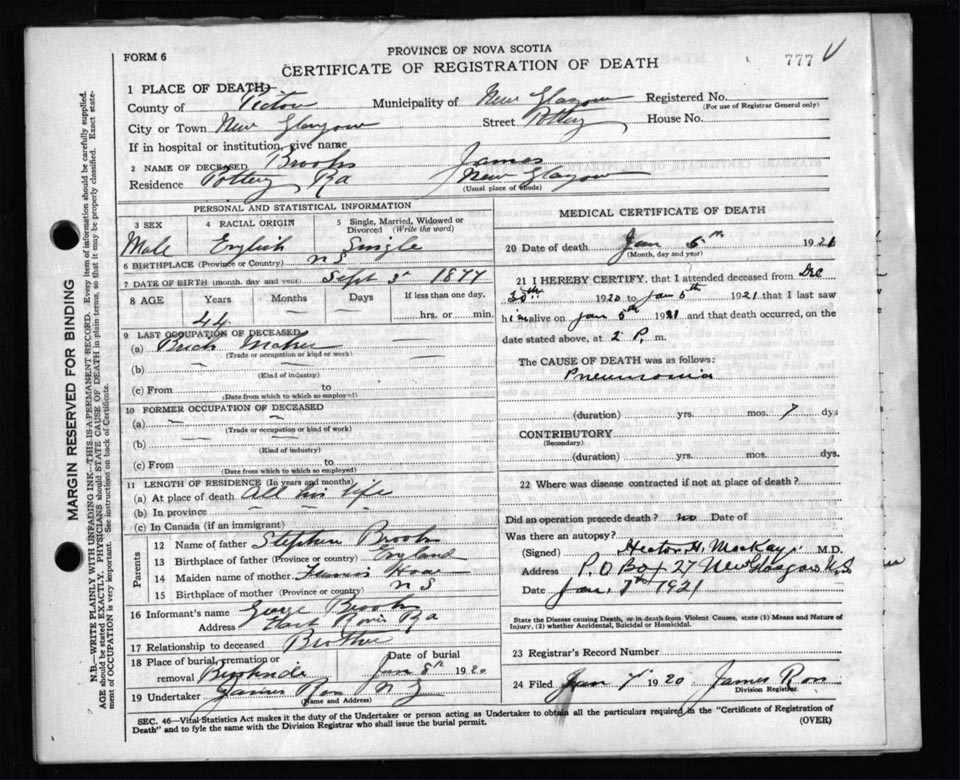 FORM 6
PROVINCE OF NOVA SCOTIA
CERTIFICATE OF REGISTRATION OF DEATH
777
1 PLACE OF DEATH
County of Pictou Municipality of New Glasgow Registered No.
(For use of Registrar General only)
City or Town New Glasgow Street Pottery House No.
If in hospital or institution, give name
2 NAME OF DECEASED Brooks James
Residence Pottery Rd New Glasgow
(Usual place of abode)
PERSONAL AND STATISTICAL INFORMATION
3 SEX 4 RACIAL ORIGIN 5 Single, Married, Widowed or Divorced (Write the word)
Male English Single
6 BIRTHPLACE (Province or Country) N S
7 DATE OF BIRTH (month, day and year) Sept 3 1877
8 AGE Years Months Days If less than one day,
44 hrs. or min.
9 LAST OCCUPATION OF DECEASED
(a) Brick Maker
(Trade or occupation or kind of work)
(b)
(Kind of industry)
(c) From to
(Date from which to which so employed)
10 FORMER OCCUPATION OF DECEASED
(a) —
(Trade or occupation or kind of work)
(b) —
(Kind of industry)
(c) From to
(Date from which to which so employed)
11 LENGTH OF RESIDENCE (In years and months)
(a) At place of death All his life
(b) In province
(c) In Canada (if an immigrant)
Parents
12 Name of father Stephen Brooks
13 Birthplace of father (Province or country) England
14 Maiden name of mother
15 Birthplace of mother (Province or country) N S
16 Informant's name George Brooks
Address East River Rd
17 Relationship to deceased Brother
18 Place of burial, cremation or removal Date of burial
Jan 8th 1920
19 Undertaker James
(Name and Address)
MEDICAL CERTIFICATE OF DEATH
20 Date of death Jan 5th 1921
(Month, day and year)
21 I HEREBY CERTIFY, that I attended deceased from Dec
30th 1920 to Jan 5th 1921 that I last saw
him alive on Jan 5th 1921 and that death occurred, on the
date stated above, at 2 P. m.
The CAUSE OF DEATH was as follows:
Pneumonia
(duration) yrs. mos. 7 dys
CONTRIBUTORY
(Secondary)
(duration) yrs. mos. dys.
22 Where was disease contracted if not at place of death?
Did an operation precede death? no Date of
Was there an autopsy?
(Signed) Hector H. MacKay M.D.
Address P.O Box 27 New Glasgow N.S
Date Jan. 7th 1921
State the Disease causing Death, or in death from Violent Causes, state (1) Means and Nature of Injury, (2) whether Accidental, Suicidal or Homicidal.
23 Registrar's Record Number
24 Filed Jan 7 1920 James
Division Registrar.
SEC. 46—Vital Statistics Act makes it the duty of the Undertaker or person acting as Undertaker to obtain all the particulars required in the "Certificate of Registration of
Death" and to fyle the same with the Division Registrar who shall issue the burial permit.
(OVER)
MARGIN RESERVED FOR BINDING
N.B.—WRITE PLAINLY WITH UNFADING INK—THIS IS A PERMANENT RECORD. Every item of information should be carefully supplied.
AGE should be stated EXACTLY. PHYSICIANS should STATE CAUSE OF DEATH in plain terms, so that it may be properly classified. Exact state-
ment of OCCUPATION is very important. See instructions on back of Certificate.